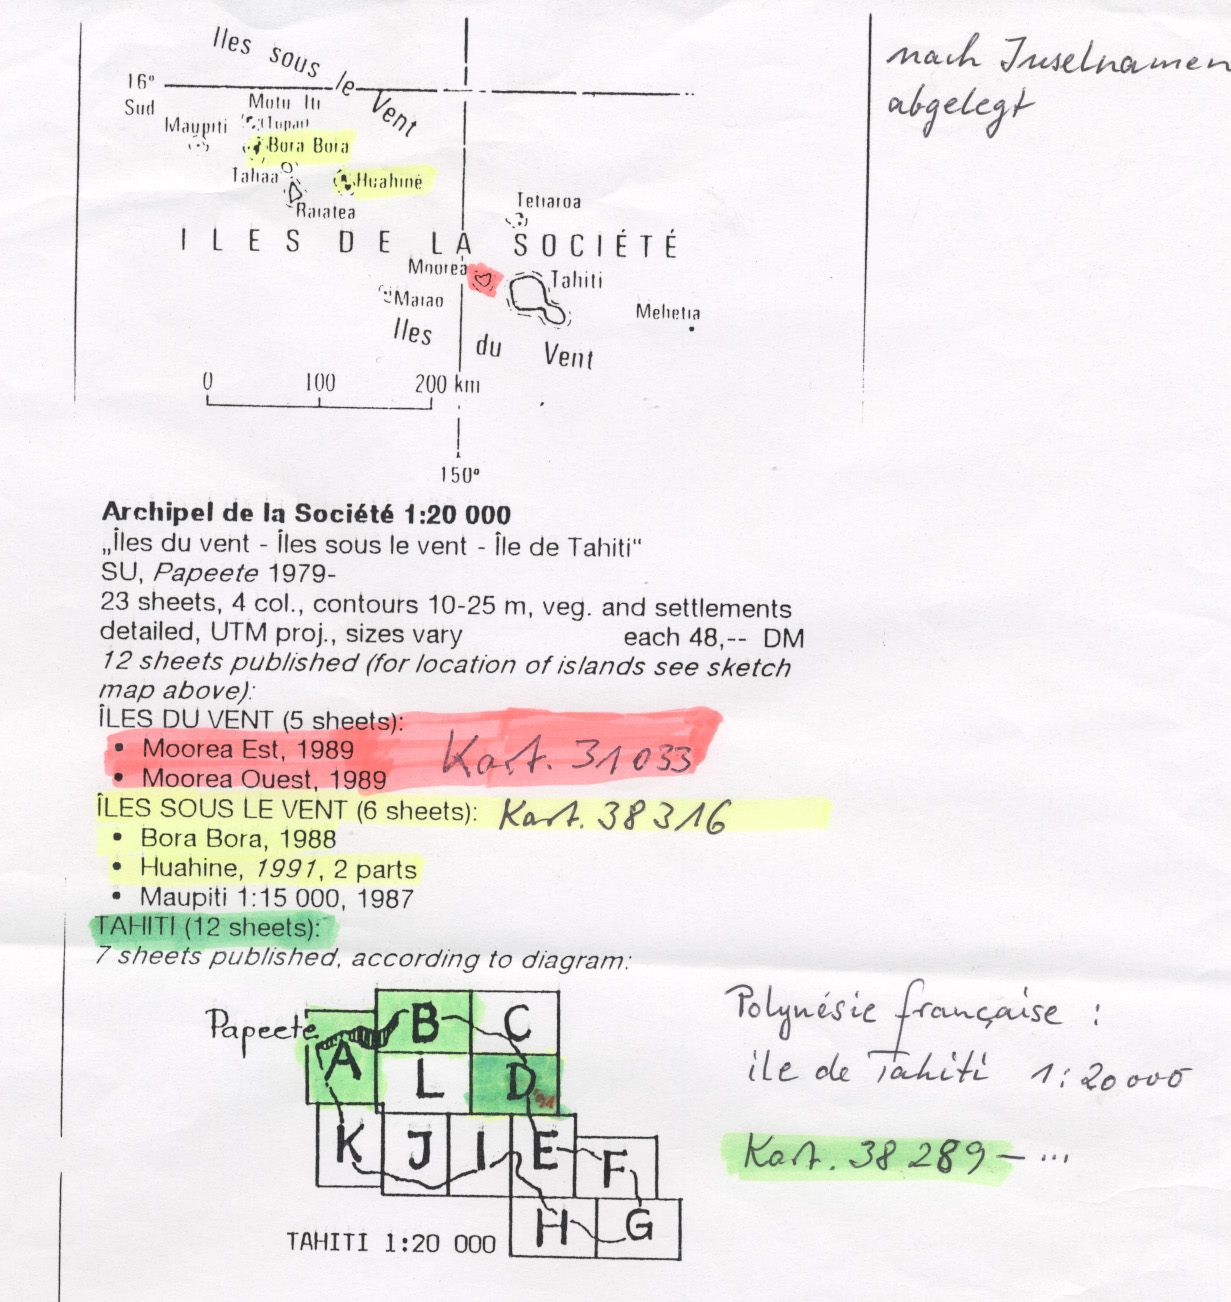 nach Inselnamen
abgelegt
Iles sous le Vent
16°
Sud
Motu Iti
Maupiti
Tupai
Bora Bora
Tahaa
Huahiné
Raiatea
Tetiaroa
ILES DE LA SOCIÉTÉ
Moorea
Tahiti
Maiao
Mehetia
Iles du Vent
0 100 200 km
150°
Archipel de la Société 1:20 000
„Îles du vent - Îles sous le vent - Île de Tahiti“
SU, Papeete 1979-
23 sheets, 4 col., contours 10-25 m, veg. and settlements
detailed, UTM proj., sizes vary each 48,-- DM
12 sheets published (for location of islands see sketch
map above):
ÎLES DU VENT (5 sheets):
• Moorea Est, 1989
Kart. 31033
• Moorea Ouest, 1989
ÎLES SOUS LE VENT (6 sheets): Kart. 38316
• Bora Bora, 1988
• Huahine, 1991, 2 parts
• Maupiti 1:15 000, 1987
TAHITI (12 sheets):
7 sheets published, according to diagram:
Papeete
B C
A L D '91
K J I E F
H G
TAHITI 1:20 000
Polynésie française :
île de Tahiti 1:20000
Kart. 38289 - ...